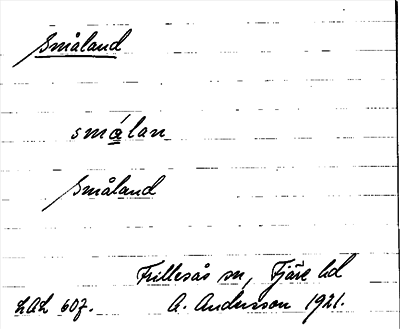 Småland
smá̱lan
Småland
Frillesås sn, Fjäre hd
LAL 607. A. Andersson 1921.